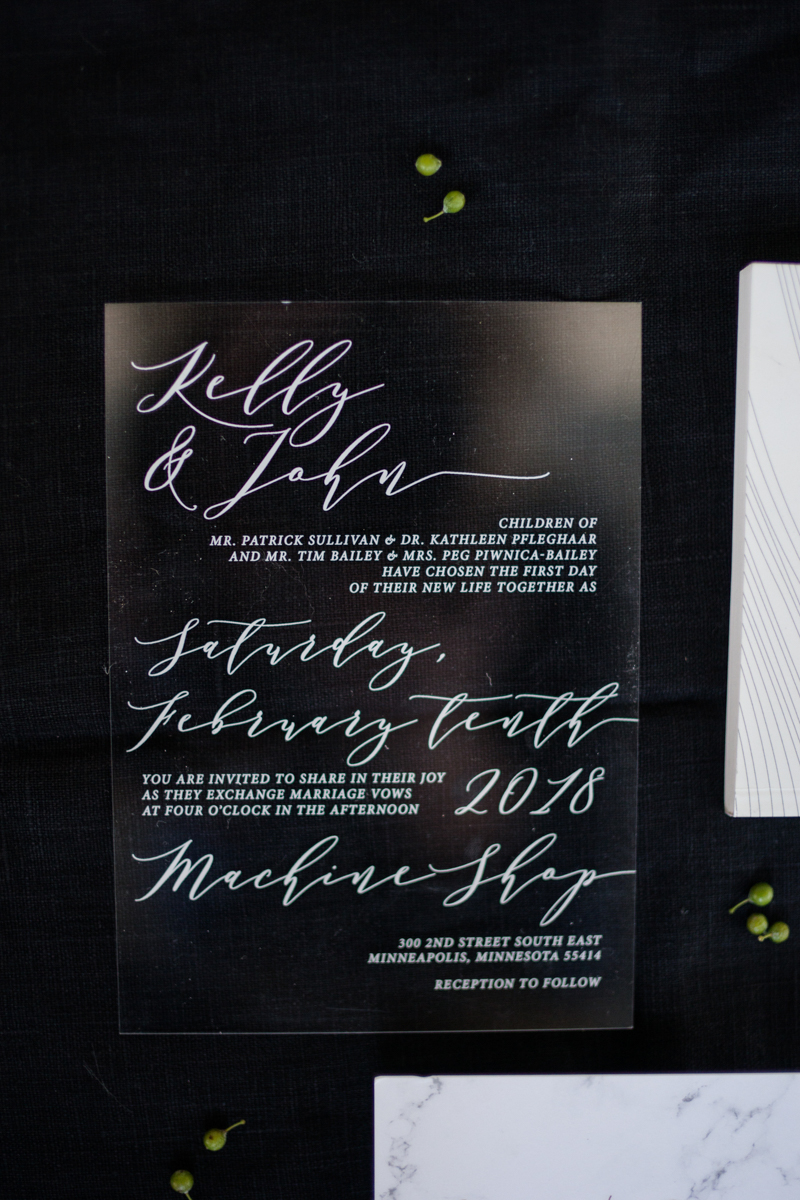 Kelly
& John
CHILDREN OF
MR. PATRICK SULLIVAN & DR. KATHLEEN PFLEGHAAR
AND MR. TIM BAILEY & MRS. PEG PIWNICA-BAILEY
HAVE CHOSEN THE FIRST DAY
OF THEIR NEW LIFE TOGETHER AS
Saturday,
February tenth
YOU ARE INVITED TO SHARE IN THEIR JOY
AS THEY EXCHANGE MARRIAGE VOWS
AT FOUR O'CLOCK IN THE AFTERNOON
2018
Machine Shop
300 2ND STREET SOUTH EAST
MINNEAPOLIS, MINNESOTA 55414
RECEPTION TO FOLLOW